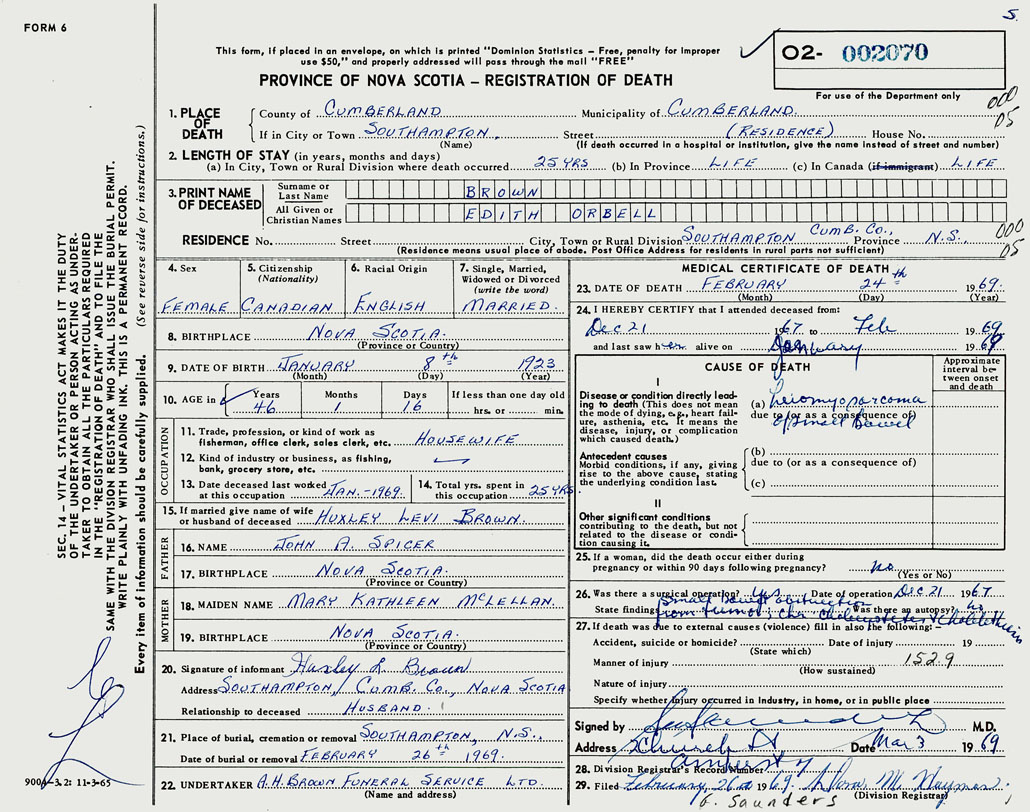 S.
FORM 6
This form, if placed in an envelope, on which is printed "Dominion Statistics – Free, penalty for improper
use $50," and properly addressed will pass through the mail "FREE"
PROVINCE OF NOVA SCOTIA – REGISTRATION OF DEATH
O2- 002070
For use of the Department only
000
05
1. PLACE OF DEATH
County of CUMBERLAND Municipality of CUMBERLAND.
If in City or Town SOUTHAMPTON, Street (RESIDENCE) House No.
(Name) (If death occurred in a hospital or institution, give the name instead of street and number)
2. LENGTH OF STAY (in years, months and days)
(a) In City, Town or Rural Division where death occurred 25 YRS (b) In Province LIFE (c) In Canada (if immigrant) LIFE
3. PRINT NAME OF DECEASED
Surname or Last Name BROWN
All Given or Christian Names EDITH ORBELL
RESIDENCE No. Street City, Town or Rural Division SOUTHAMPTON CUMB. CO., Province N.S.
000
05
(Residence means usual place of abode. Post Office Address for residents in rural parts not sufficient)
4. Sex
FEMALE
5. Citizenship (Nationality)
CANADIAN
6. Racial Origin
ENGLISH
7. Single, Married, Widowed or Divorced (write the word)
MARRIED.
8. BIRTHPLACE NOVA SCOTIA.
(Province or Country)
9. DATE OF BIRTH JANUARY 8th 1923
(Month) (Day) (Year)
10. AGE in Years Months Days If less than one day old
46 1 16 hrs. or min.
OCCUPATION
11. Trade, profession, or kind of work as
fisherman, office clerk, sales clerk, etc. HOUSEWIFE
12. Kind of industry or business, as fishing,
bank, grocery store, etc.
13. Date deceased last worked at this occupation JAN.-1969.
14. Total yrs. spent in this occupation 25 YRS.
15. If married give name of wife
or husband of deceased HUXLEY LEVI BROWN.
FATHER
16. NAME JOHN A. SPICER
17. BIRTHPLACE NOVA SCOTIA.
(Province or Country)
MOTHER
18. MAIDEN NAME MARY KATHLEEN McLELLAN.
19. BIRTHPLACE NOVA SCOTIA.
(Province or Country)
20. Signature of informant Huxley L Brown
Address SOUTHAMPTON, CUMB. CO., NOVA SCOTIA
Relationship to deceased HUSBAND.
21. Place of burial, cremation or removal SOUTHAMPTON, N.S.,
Date of burial or removal FEBRUARY 26th 1969.
22. UNDERTAKER A.H. BROWN FUNERAL SERVICE LTD.
(Name and address)
MEDICAL CERTIFICATE OF DEATH
23. DATE OF DEATH FEBRUARY 24th 1969.
(Month) (Day) (Year)
24. I HEREBY CERTIFY that I attended deceased from:
Dec 21 1967 to Feb 1969
and last saw her alive on January 1969
CAUSE OF DEATH
Approximate interval between onset and death
I
Disease or condition directly lead-
ing to death (This does not mean
the mode of dying, e.g., heart fail-
ure, asthenia, etc. It means the
disease, injury, or complication
which caused death.)
(a) Leiomyosarcoma
due to (or as a consequence of)
of Small Bowel
Antecedent causes
Morbid conditions, if any, giving
rise to the above cause, stating
the underlying condition last.
(b)
due to (or as a consequence of)
(c)
II
Other significant conditions
contributing to the death, but not
related to the disease or condi-
tion causing it.
25. If a woman, did the death occur either during
pregnancy or within 90 days following pregnancy? no
(Yes or No)
26. Was there a surgical operation? yes Date of operation Dec 21 1967
small bowel obstruction
State findings from tumor; chr Cholecystitis & Cholelithiasis Was there an autopsy? no
27. If death was due to external causes (violence) fill in also the following: –
Accident, suicide or homicide? Date of injury 19
(State which)
Manner of injury 152.9
(How sustained)
Nature of injury
Specify whether Injury occurred in industry, in home, or in public place
Signed by M.D.
Address 2 Church St, Date Mar 3 1969
Amherst
28. Division Registrar's Record Number
29. Filed February 26th 1969.
(Division Registrar)
G. Saunders
SEC. 14 – VITAL STATISTICS ACT MAKES IT THE DUTY
OF THE UNDERTAKER OR PERSON ACTING AS UNDER-
TAKER TO OBTAIN ALL THE PARTICULARS REQUIRED
IN THE "REGISTRATION OF DEATH" AND TO FILE THE
SAME WITH THE DIVISION REGISTRAR WHO SHALL ISSUE THE BURIAL PERMIT.
WRITE PLAINLY WITH UNFADING INK. THIS IS A PERMANENT RECORD.
Every item of information should be carefully supplied. (See reverse side for instructions.)
900A-3.2: 11-3-65